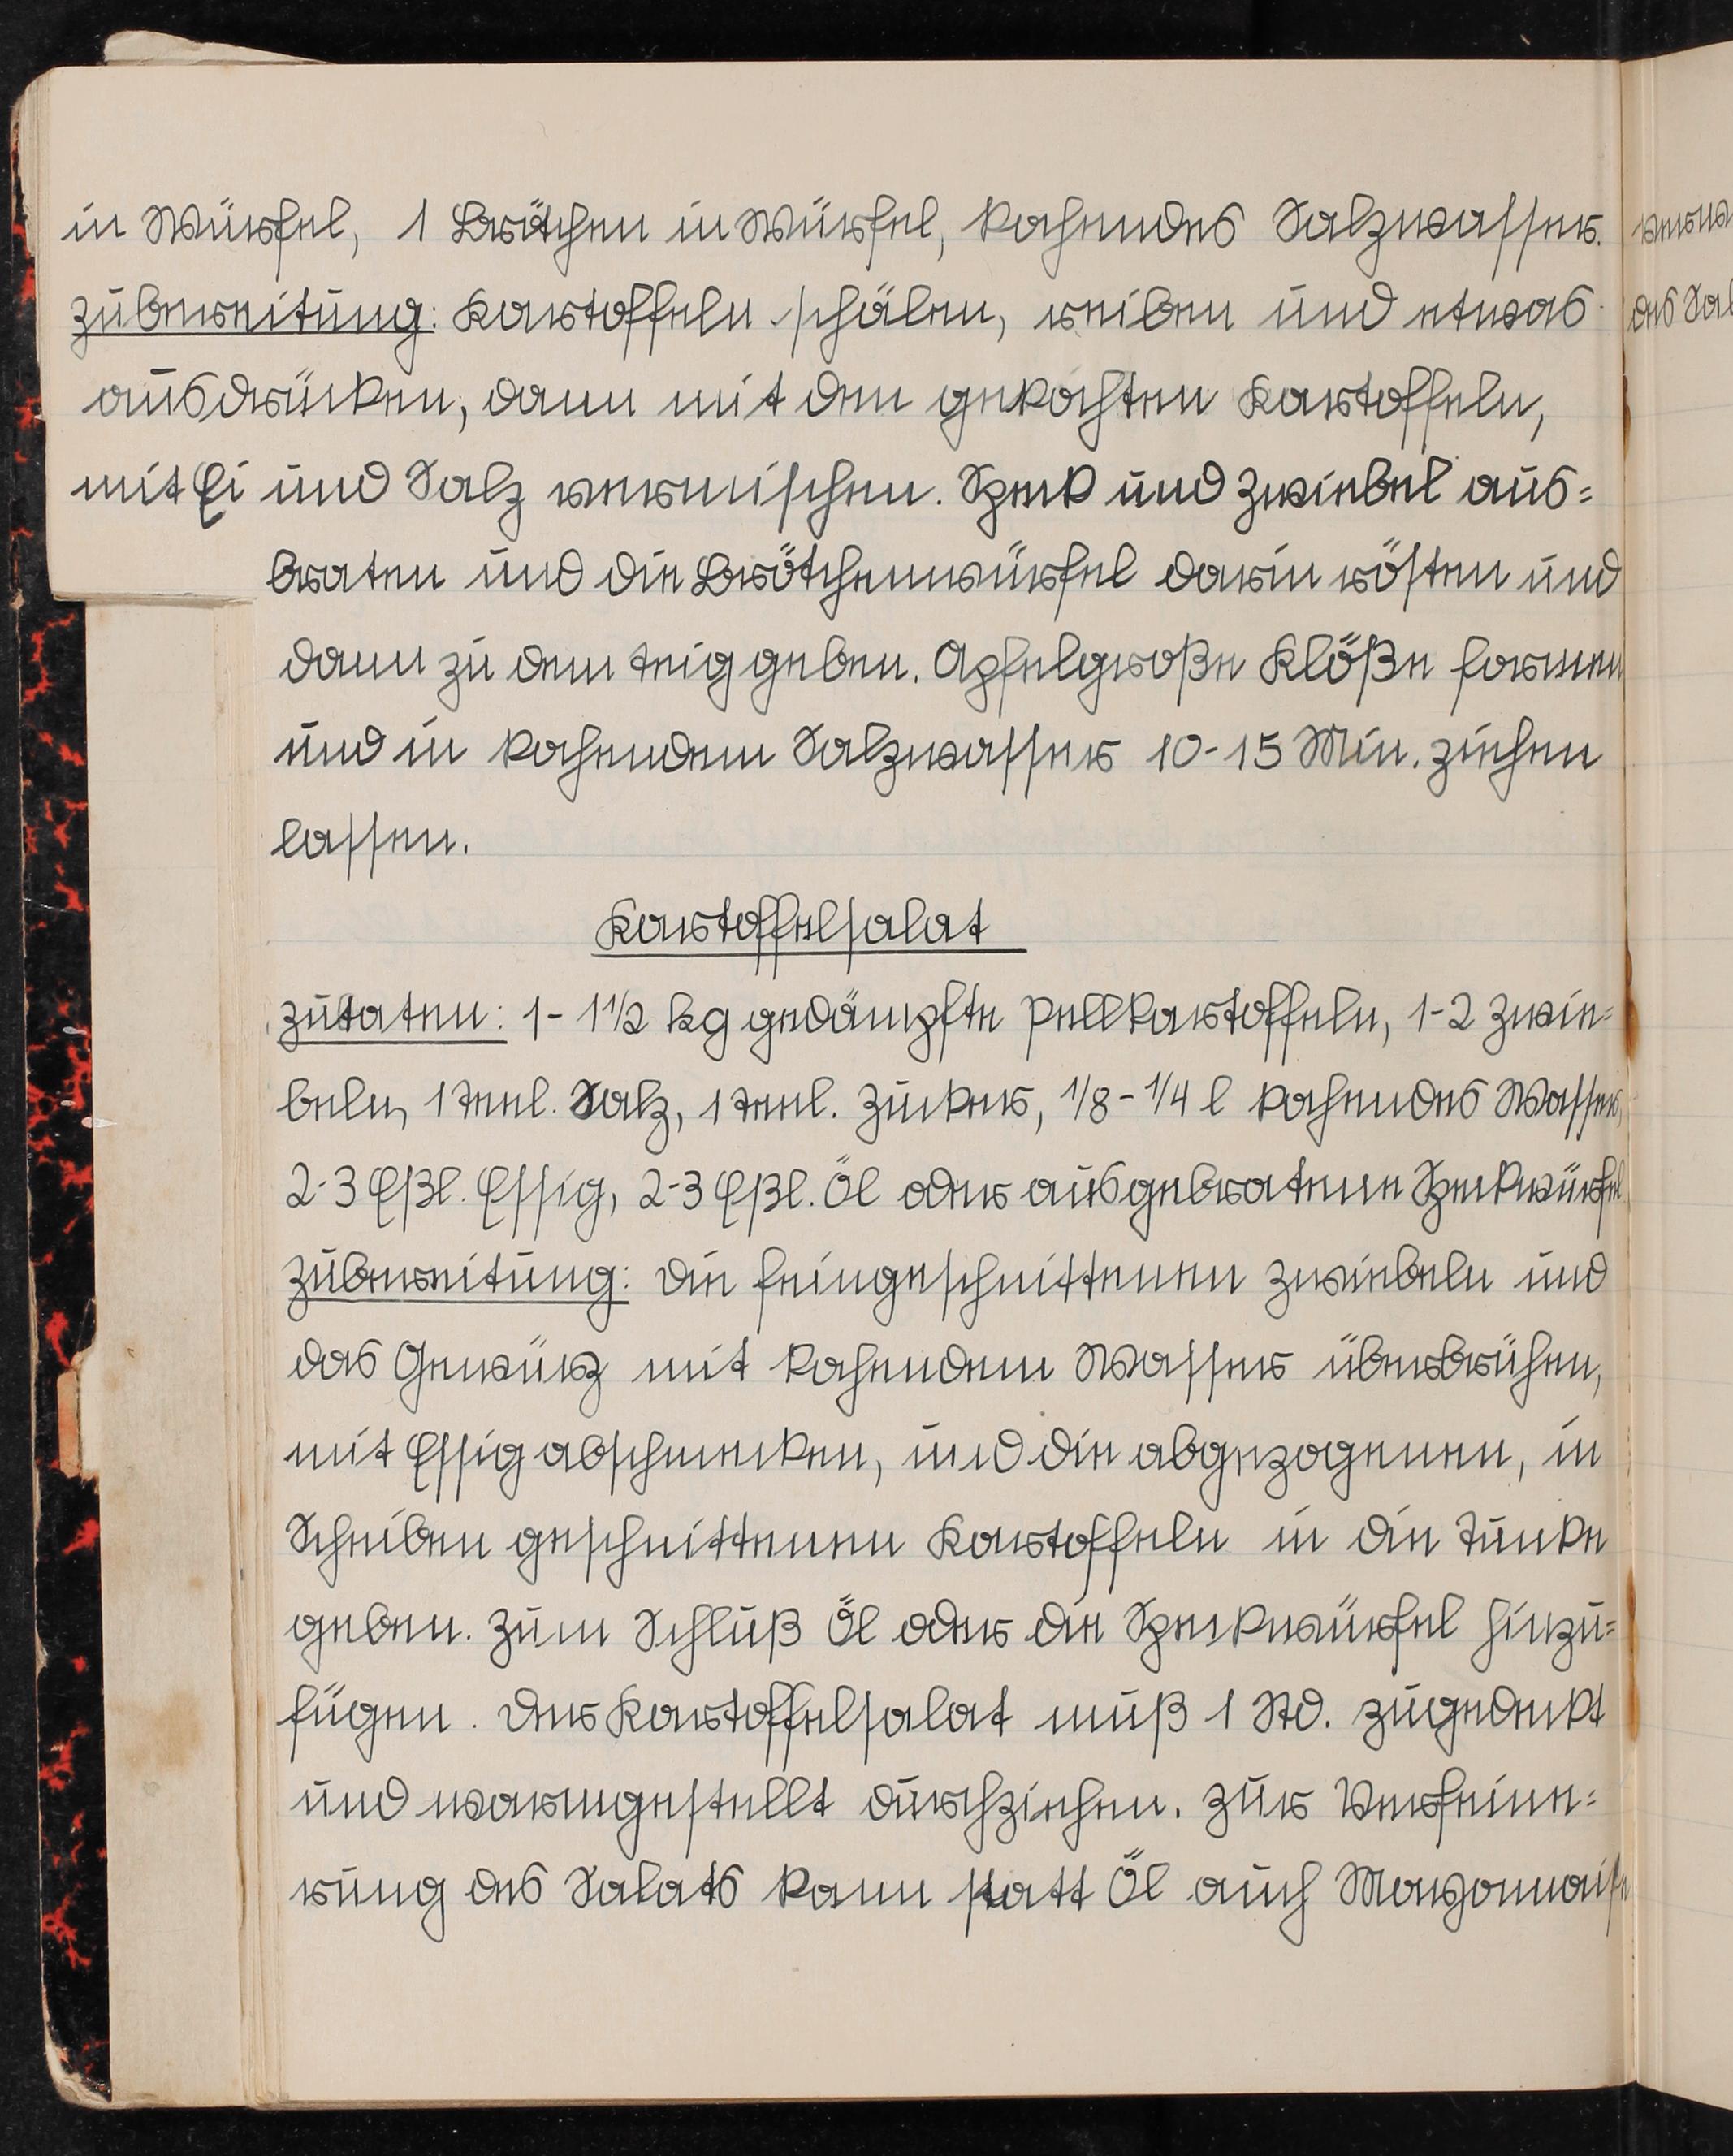 in Würfel, 1 Brötchen in Würfel, kochendes Salzwasser.
Zubereitung: Kartoffeln schälen, reiben und etwas
ausdrücken, dann mit den gekochten Kartoffeln,
mit Ei und Salz vermischen. Speck und Zwiebel aus=
braten und die Brötchenwürfel darin rösten und
dann zu dem Teig geben. Apfelgroße Klöße formen
und in kochendem Salzwasser 10-15 Min. ziehen
lassen.
Kartoffelsalat
Zutaten: 1- 1 1/2 kg gedämpfte Pellkartoffeln, 1-2 Zwie=
beln, 1 Teel. Salz, 1 Teel. Zucker, 1/8 - 1/4 l kochendes Wasser,
2-3 Eßl. Essig, 2-3 Eßl. Öl oder ausgebratene Speckwürfel
Zubereitung: Die feingeschnittenen Zwiebeln und
das Gewürz mit kochendem Wasser überbrühen,
mit Essig abschmecken, und die abgezogenen, in
Scheiben geschnittenen Kartoffeln in die Tunke
geben. Zum Schluß Öl oder die Speckwürfel hinzu=
fügen. Der Kartoffelsalat muß 1 Std. zugedeckt
und warmgestellt durchziehen. Zur Verfeine=
rung des Salats kann statt Öl auch Mayonnaise